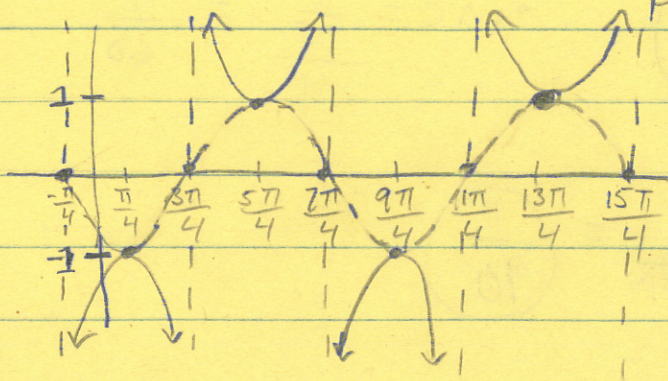 1
-π/4 π/4 3π/4 5π/4 7π/4 9π/4 11π/4 13π/4 15π/4
-1